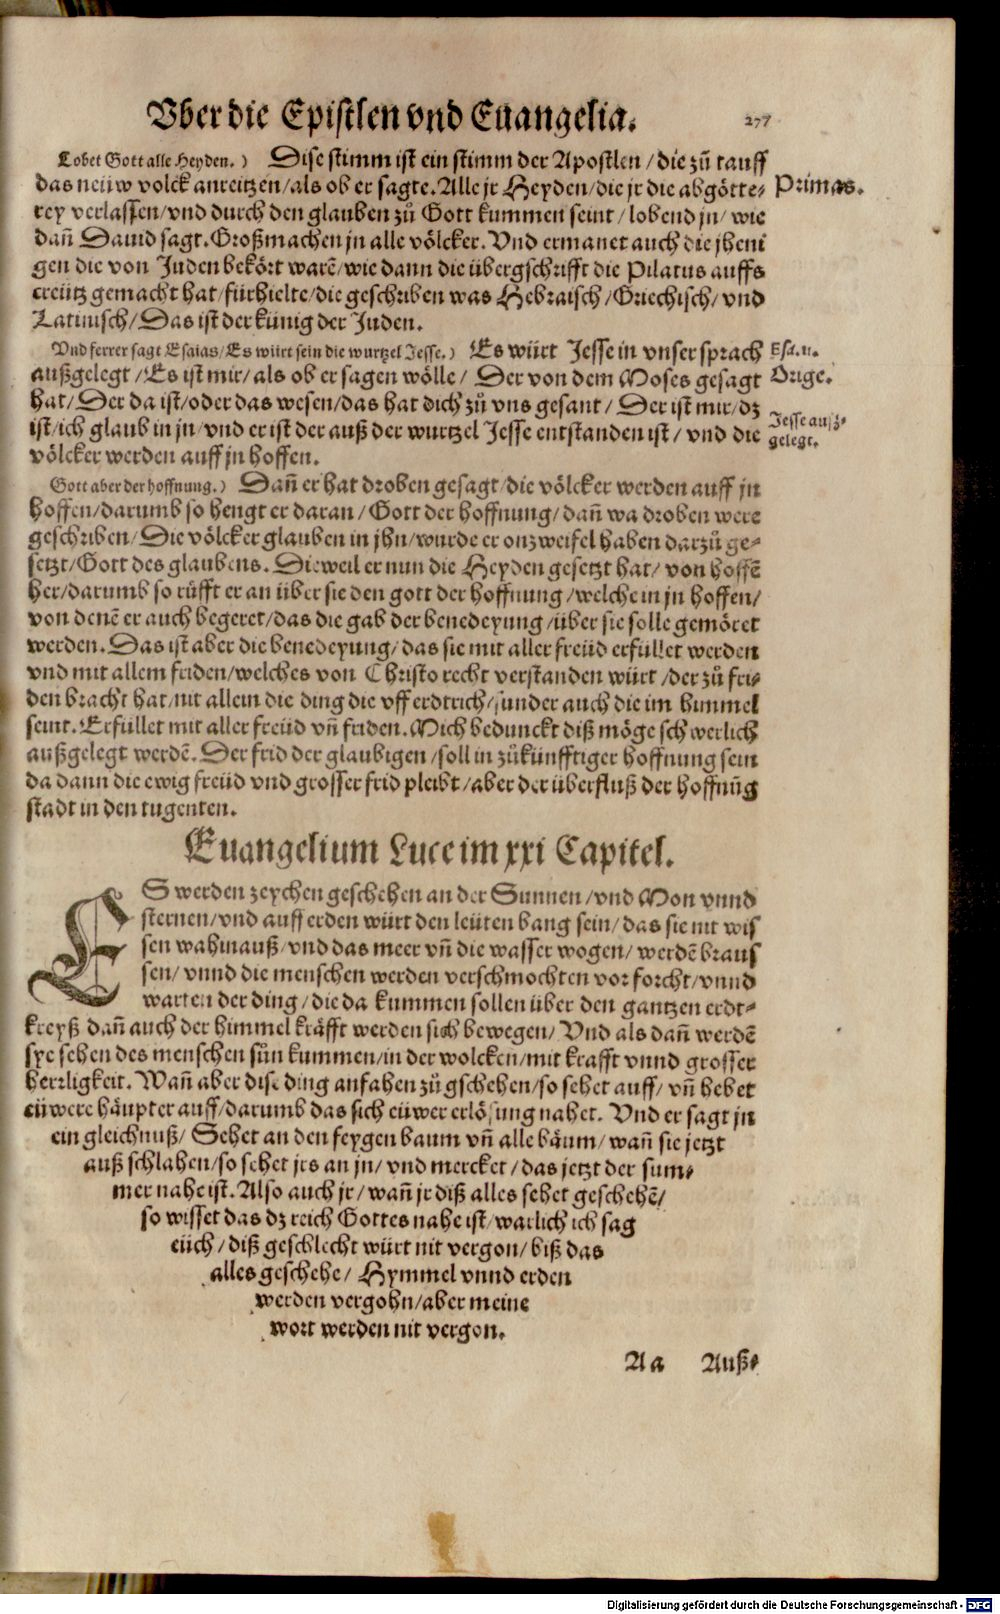 Vber die Epistlen vnd Euangelia. 277
Lobet Gott alle Heyden.) Dise stimm ist ein stimm der Apostlen / die zů tauff
das neüw volck anreitzen / als ob er sagte. Alle jr Heyden / die jr die abgötte- Primas.
rey verlassen / vnd durch den glauben zů Gott kummen seint / lobend jn / wie
dañ Dauid sagt. Großmachen jn alle völcker. Vnd ermanet auch die jheni
gen die von Juden bekört warẽ / wie dann die übergschrifft die Pilatus auffs
creütz gemacht hat / fürhielte / die geschriben was Hebraisch / Griechisch / vnd
Latinisch / Das ist der künig der Juden.
Vnd ferrer sagt Esaias / Es würt sein die wurtzel Jesse.) Es würt Jesse in vnser sprach Esa. 11.
außgelegt / Es ist mir / als ob er sagen wölle / Der von dem Moses gesagt Orige.
hat / Der da ist / oder das wesen / das hat dich zů vns gesant / Der ist mir / dz Jesse auß-
ist / ich glaub in jn / vnd er ist der auß der wurtzel Jesse entstanden ist / vnd die gelegt.
völcker werden auff jn hoffen.
Gott aber der hoffnung.) Dañ er hat droben gesagt / die völcker werden auff jn
hoffen / darumb so hengt er daran / Gott der hoffnung / dañ wa droben were
geschriben / Die völcker glauben in jhn / wurde er onzweifel haben darzů ge-
setzt / Gott des glaubens. Dieweil er nun die Heyden gesetzt hat / von hoffẽ
her / darumb so růfft er an über sie den gott der hoffnung / welche in jn hoffen /
von denẽ er auch begeret / das die gab der benedeyung / über sie solle gemöret
werden. Das ist aber die benedeyung / das sie mit aller freüd erfüllet werden
vnd mit allem friden / welches von Christo recht verstanden würt / der zů fri-
den bracht hat / nit allein die ding die vff erdtrich / sunder auch die im himmel
seint. Erfüllet mit aller freüd vñ friden. Mich bedunckt diß möge schwerlich
außgelegt werdẽ. Der frid der glaubigen / soll in zůkünfftiger hoffnung sein
da dann die ewig freüd vnd grosser frid pleibt / aber der überfluß der hoffnũg
stadt in den tugenten.
Euangelium Luce im xxi Capitel.
ES werden zeychen geschehen an der Sunnen / vnd Mon vnnd
sternen / vnd auff erden würt den leüten bang sein / das sie nit wis
sen wahinauß / vnd das meer vñ die wasser wogen / werdẽ braus
sen / vnnd die menschen werden verschmochten vor forcht / vnnd
warten der ding / die da kummen sollen über den gantzen erdt-
kreyß dañ auch der himmel kräfft werden sich bewegen / Vnd als dañ werdẽ
sye sehen des menschen sůn kummen / in der wolcken / mit krafft vnnd grosser
herrligkeit. Wañ aber dise ding anfahen zů gschehen / so sehet auff / vñ hebet
eüwere häupter auff / darumb das sich eüwer erlösung nahet. Vnd er sagt jn
ein gleichnuß / Sehet an den feygen baum vñ alle bäum / wañ sie jetzt
auß schlahen / so sehet jrs an jn / vnd mercket / das jetzt der sum-
mer nahe ist. Also auch jr / wañ jr diß alles sehet geschehẽ /
so wisset das dz reich Gottes nahe ist / warlich ich sag
eüch / diß geschlecht würt nit vergon / biß das
alles geschehe / Hymmel vnnd erden
werden vergohn / aber meine
wort werden nit vergon.
Aa Auß-
Digitalisierung gefördert durch die Deutsche Forschungsgemeinschaft - DFG